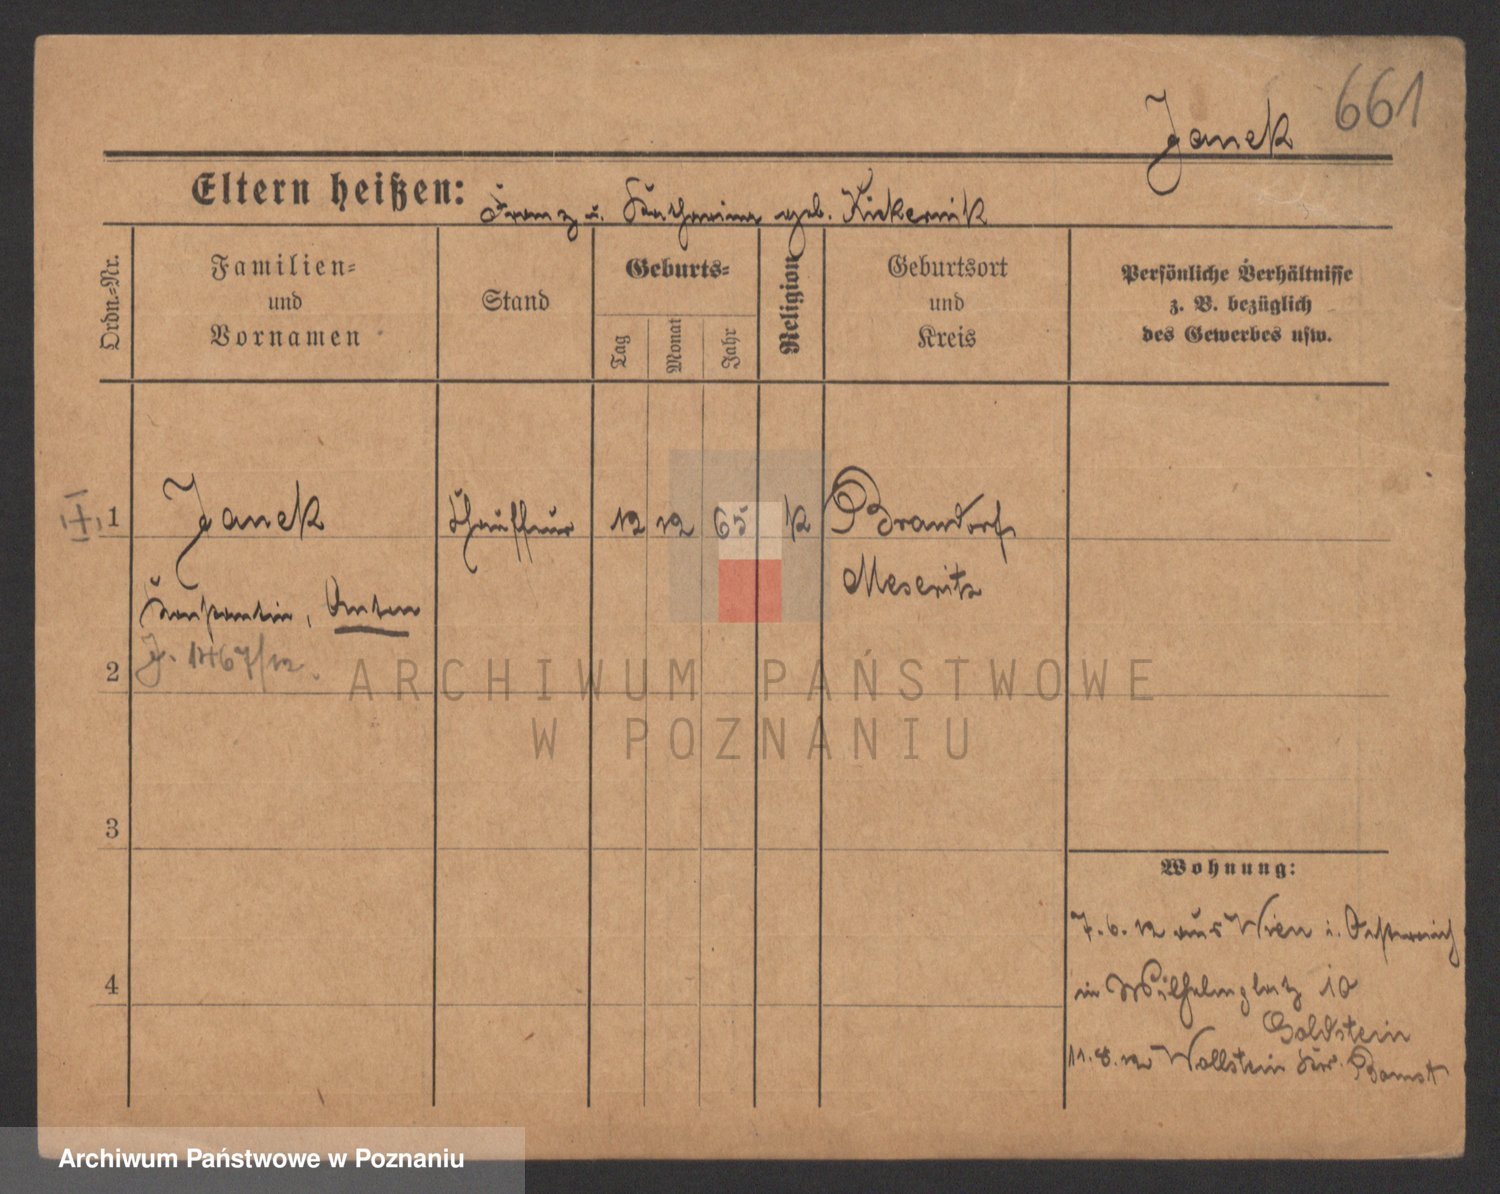 661
Janek
Eltern heißen: Franz u. Katharina geb. Kickernik
Ordn.-Nr.
Familien- und Vornamen
Stand
Geburts-
Tag
Monat
Jahr
Religion
Geburtsort und Kreis
Persönliche Verhältnisse
z. B. bezüglich
des Gewerbes usw.
1 Janek Chauffeur 12 12 65 k Brandorf
Meseritz
Konstantin, Anton
2 J. 1467/12.
ARCHIWUM PAŃSTWOWE
W POZNANIU
3
Wohnung:
7.6.12 aus Wien i. Österreich
4
in Wilhelmplatz 10
Goldstein
11.8.12 Wollstein Kr. Bomst
Archiwum Państwowe w Poznaniu